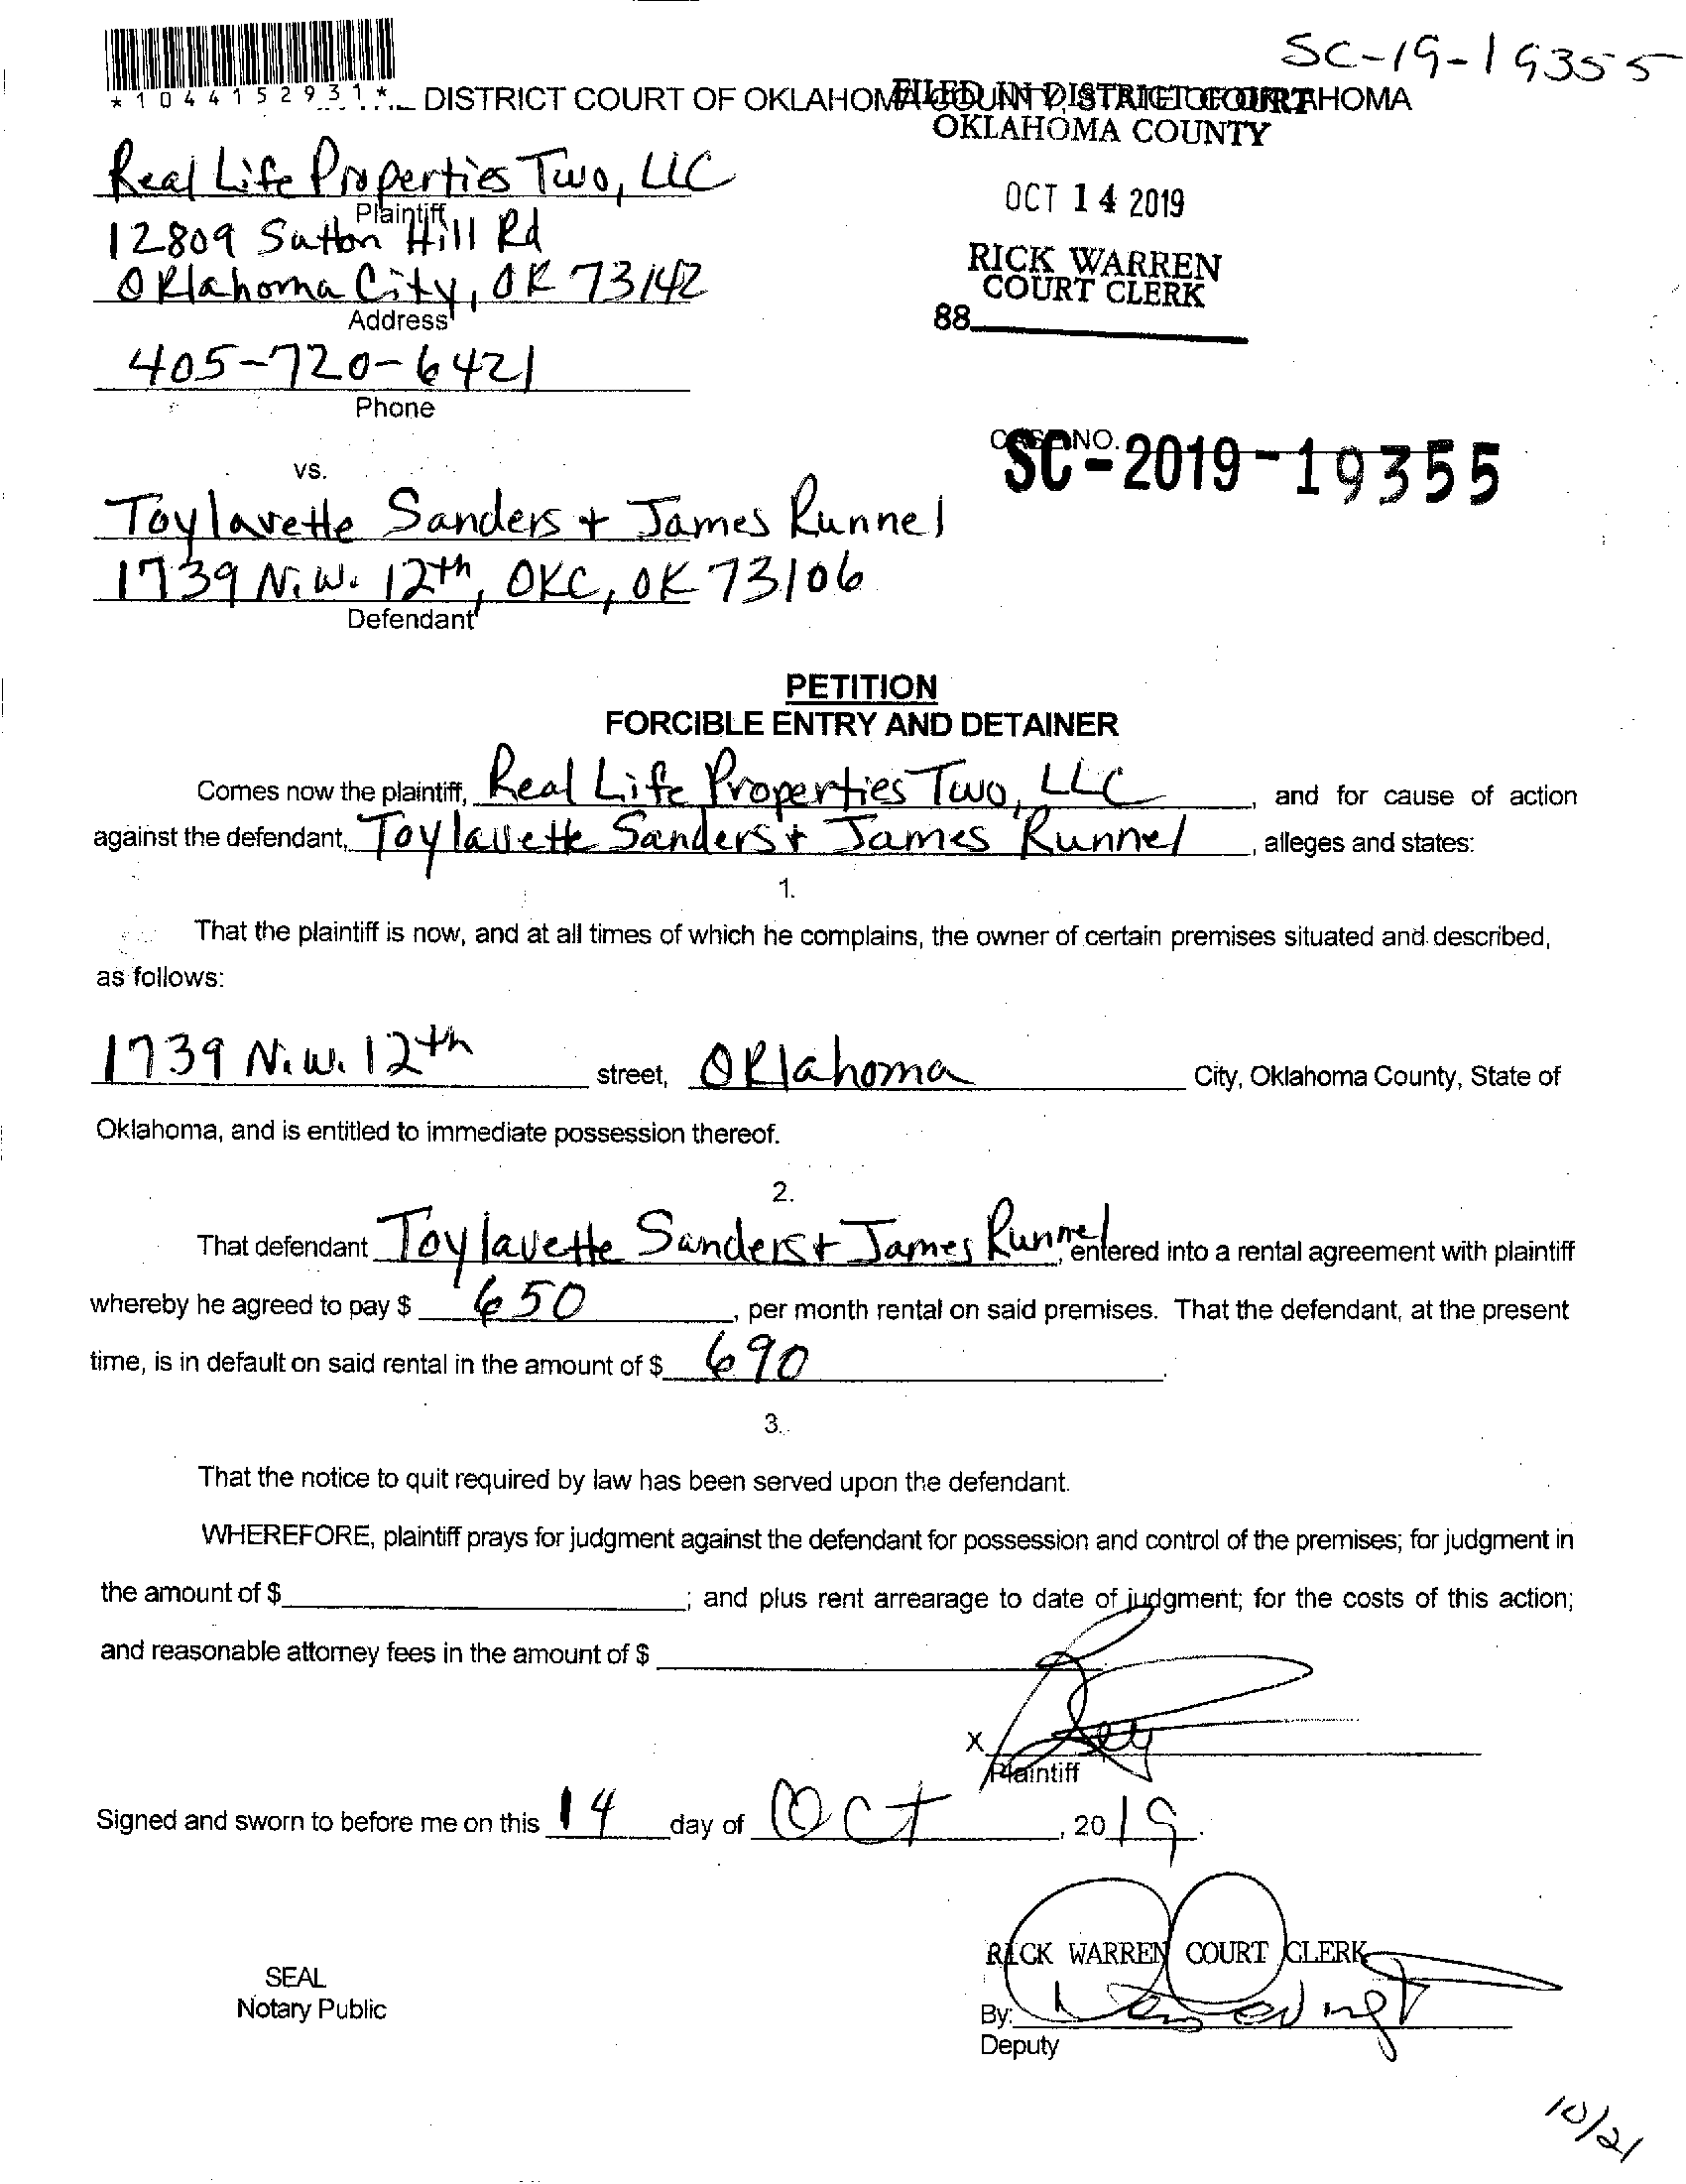 SC-19-19355
*1044152931*
DISTRICT COURT OF OKLAHOMA COUNTY, STATE OF OKLAHOMA
FILED IN DISTRICT COURT
OKLAHOMA COUNTY
Real Life Properties Two, LLC
Plaintiff
OCT 14 2019
12809 Sutton Hill Rd
RICK WARREN
COURT CLERK
Oklahoma City, OK 73142
Address
88
405-720-6421
Phone
CASE NO.
SC-2019-19355
vs.
Toylavette Sanders + James Runnel
1739 N.W. 12th, OKC, OK 73106
Defendant
PETITION
FORCIBLE ENTRY AND DETAINER
Comes now the plaintiff, Real Life Properties Two, LLC, and for cause of action
against the defendant, Toylavette Sanders + James Runnel, alleges and states:
1.
That the plaintiff is now, and at all times of which he complains, the owner of certain premises situated and described,
as follows:
1739 N.W. 12th street, Oklahoma City, Oklahoma County, State of
Oklahoma, and is entitled to immediate possession thereof.
2.
That defendant Toylavette Sanders + James Runnel, entered into a rental agreement with plaintiff
whereby he agreed to pay $ 650, per month rental on said premises. That the defendant, at the present
time, is in default on said rental in the amount of $ 690.
3.
That the notice to quit required by law has been served upon the defendant.
WHEREFORE, plaintiff prays for judgment against the defendant for possession and control of the premises; for judgment in
the amount of $ ; and plus rent arrearage to date of judgment; for the costs of this action;
and reasonable attorney fees in the amount of $
X
Plaintiff
Signed and sworn to before me on this 14 day of Oct, 2019.
RICK WARREN COURT CLERK
SEAL
Notary Public
By:
Deputy
10/21